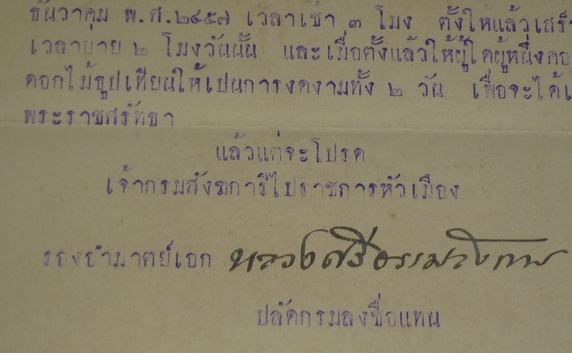 ธันวาคม พ.ศ.๒๔๕๗ เวลาเช้า ๓ โมง ตั้งให้แล้วเสร็
เวลาบ่าย ๒ โมงวันนั้น และเมื่อตั้งแล้วให้ผู้ใดผู้หนึ่งคอ
ดอกไม้ธูปเทียนให้เปนการงดงามทั้ง ๒ วัน เพื่อจะได้เ
พระราชศรัทธา
แล้วแต่จะโปรด
เจ้ากรมสังฆการีไปราชการหัวเมือง
รองอำมาตย์เอก หลวงศรีธรรมสังการ
ปลัดกรมลงชื่อแทน